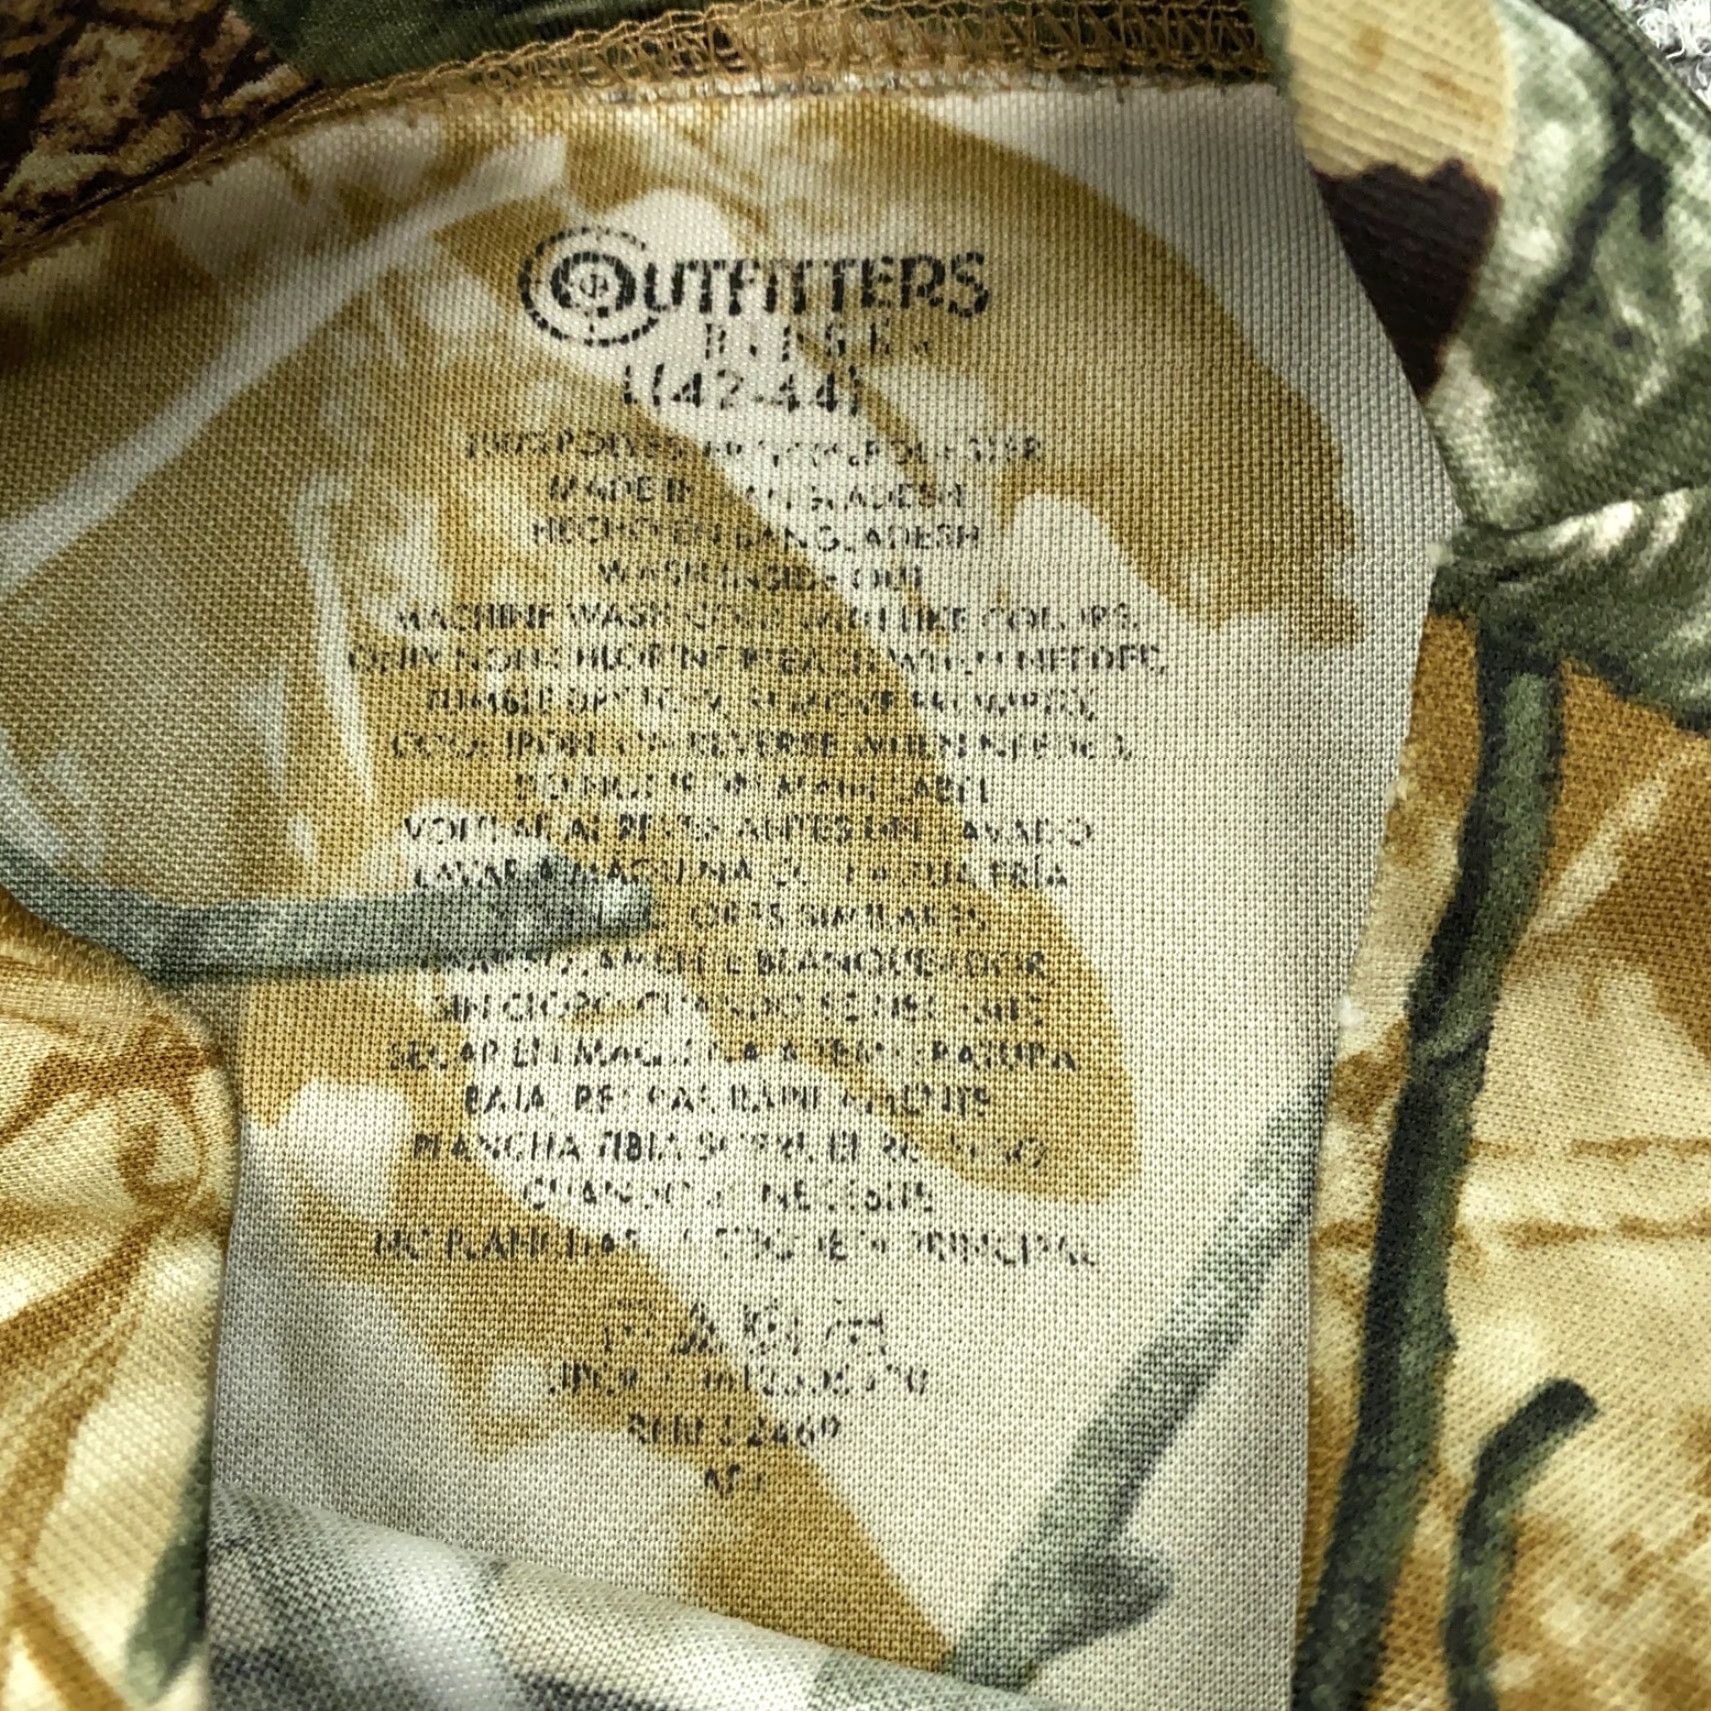 OUTFITTERS
RIDGE
L(42-44)
100% POLYESTER POLYESTER
MADE IN BANGLADESH
HECHO EN BANGLADESH
WASH INSIDE OUT
MACHINE WASH COLD WITH LIKE COLORS,
ONLY NON-CHLORINE BLEACH WHEN NEEDED,
TUMBLE DRY LOW, REMOVE PROMPTLY,
COOL IRON ON REVERSE WHEN NEEDED,
DO NOT IRON MAIN LABEL
VOLTEAR AL REVES ANTES DEL LAVADO
LAVAR A MAQUINA CON AGUA FRÍA
COLORES SIMILARES
BLANQUEADOR
SIN CLORO CUANDO SE NECESITE
SECAR EN MAQUINA A TEMPERATURA
BAJA, RETIRAR RAPIDAMENTE
PLANCHA TIBIA SOBRE EL REVERSO
CUANDO SE NECESITE
NO PLANCHAR LA ETIQUETA PRINCIPAL